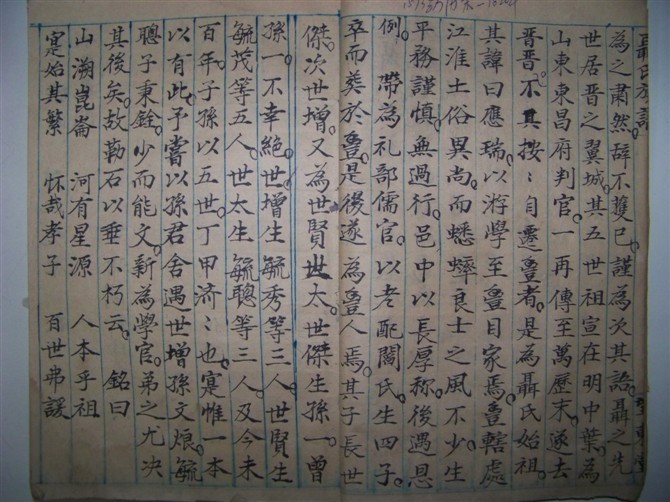 聶氏族譜
為之肅然辞不獲已謹為次其語聶之先
世居晋之翼城其五世祖宣在明中葉為
山東東昌府判官一再傳至萬歷末遂去
晋晋不其按〻自遷壹者是為聶氏始祖
其諱曰應瑞以游學至壹目家焉壹轄處
江淮土俗異尚而蟋蟀良士之風不少生
平務謹慎無過行邑中以長厚称後遇恩
例帶為礼部儒官以老配閻氏生四子
卒而葬於壹是後遂為壹人焉其子長世
傑次世增又為世賢世太世傑生孫一曾
孫一不幸絶世增生毓秀等三人世賢生
毓茂等五人世太生毓聰等三人及今未
百年子孫以五世丁甲济〻也寔惟一本
以有此予嘗以孫君舍遇世增孫文烺毓
聰子東銓少而能文新為學官弟之尤决
其後矣故勒石以垂不朽云 銘曰
山溯崑崙 河有星源 人本乎祖
寔始其繁 怀哉孝子 百世弗諼